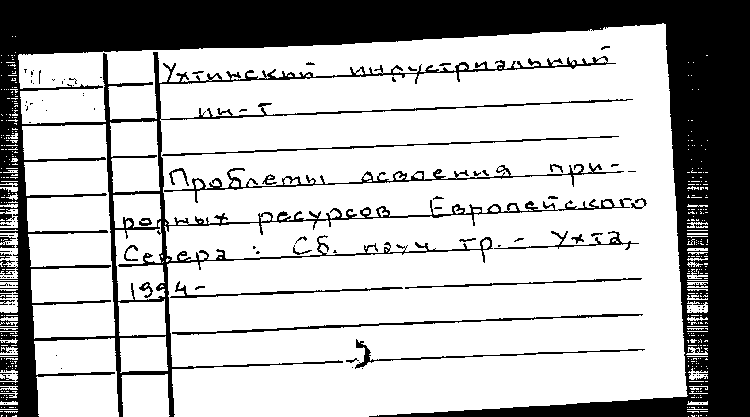 Ухтинский индустриальный
ин-т
Проблемы освоения при-
родных ресурсов Европейского
Севера : Сб. науч. тр. - Ухта,
1994-